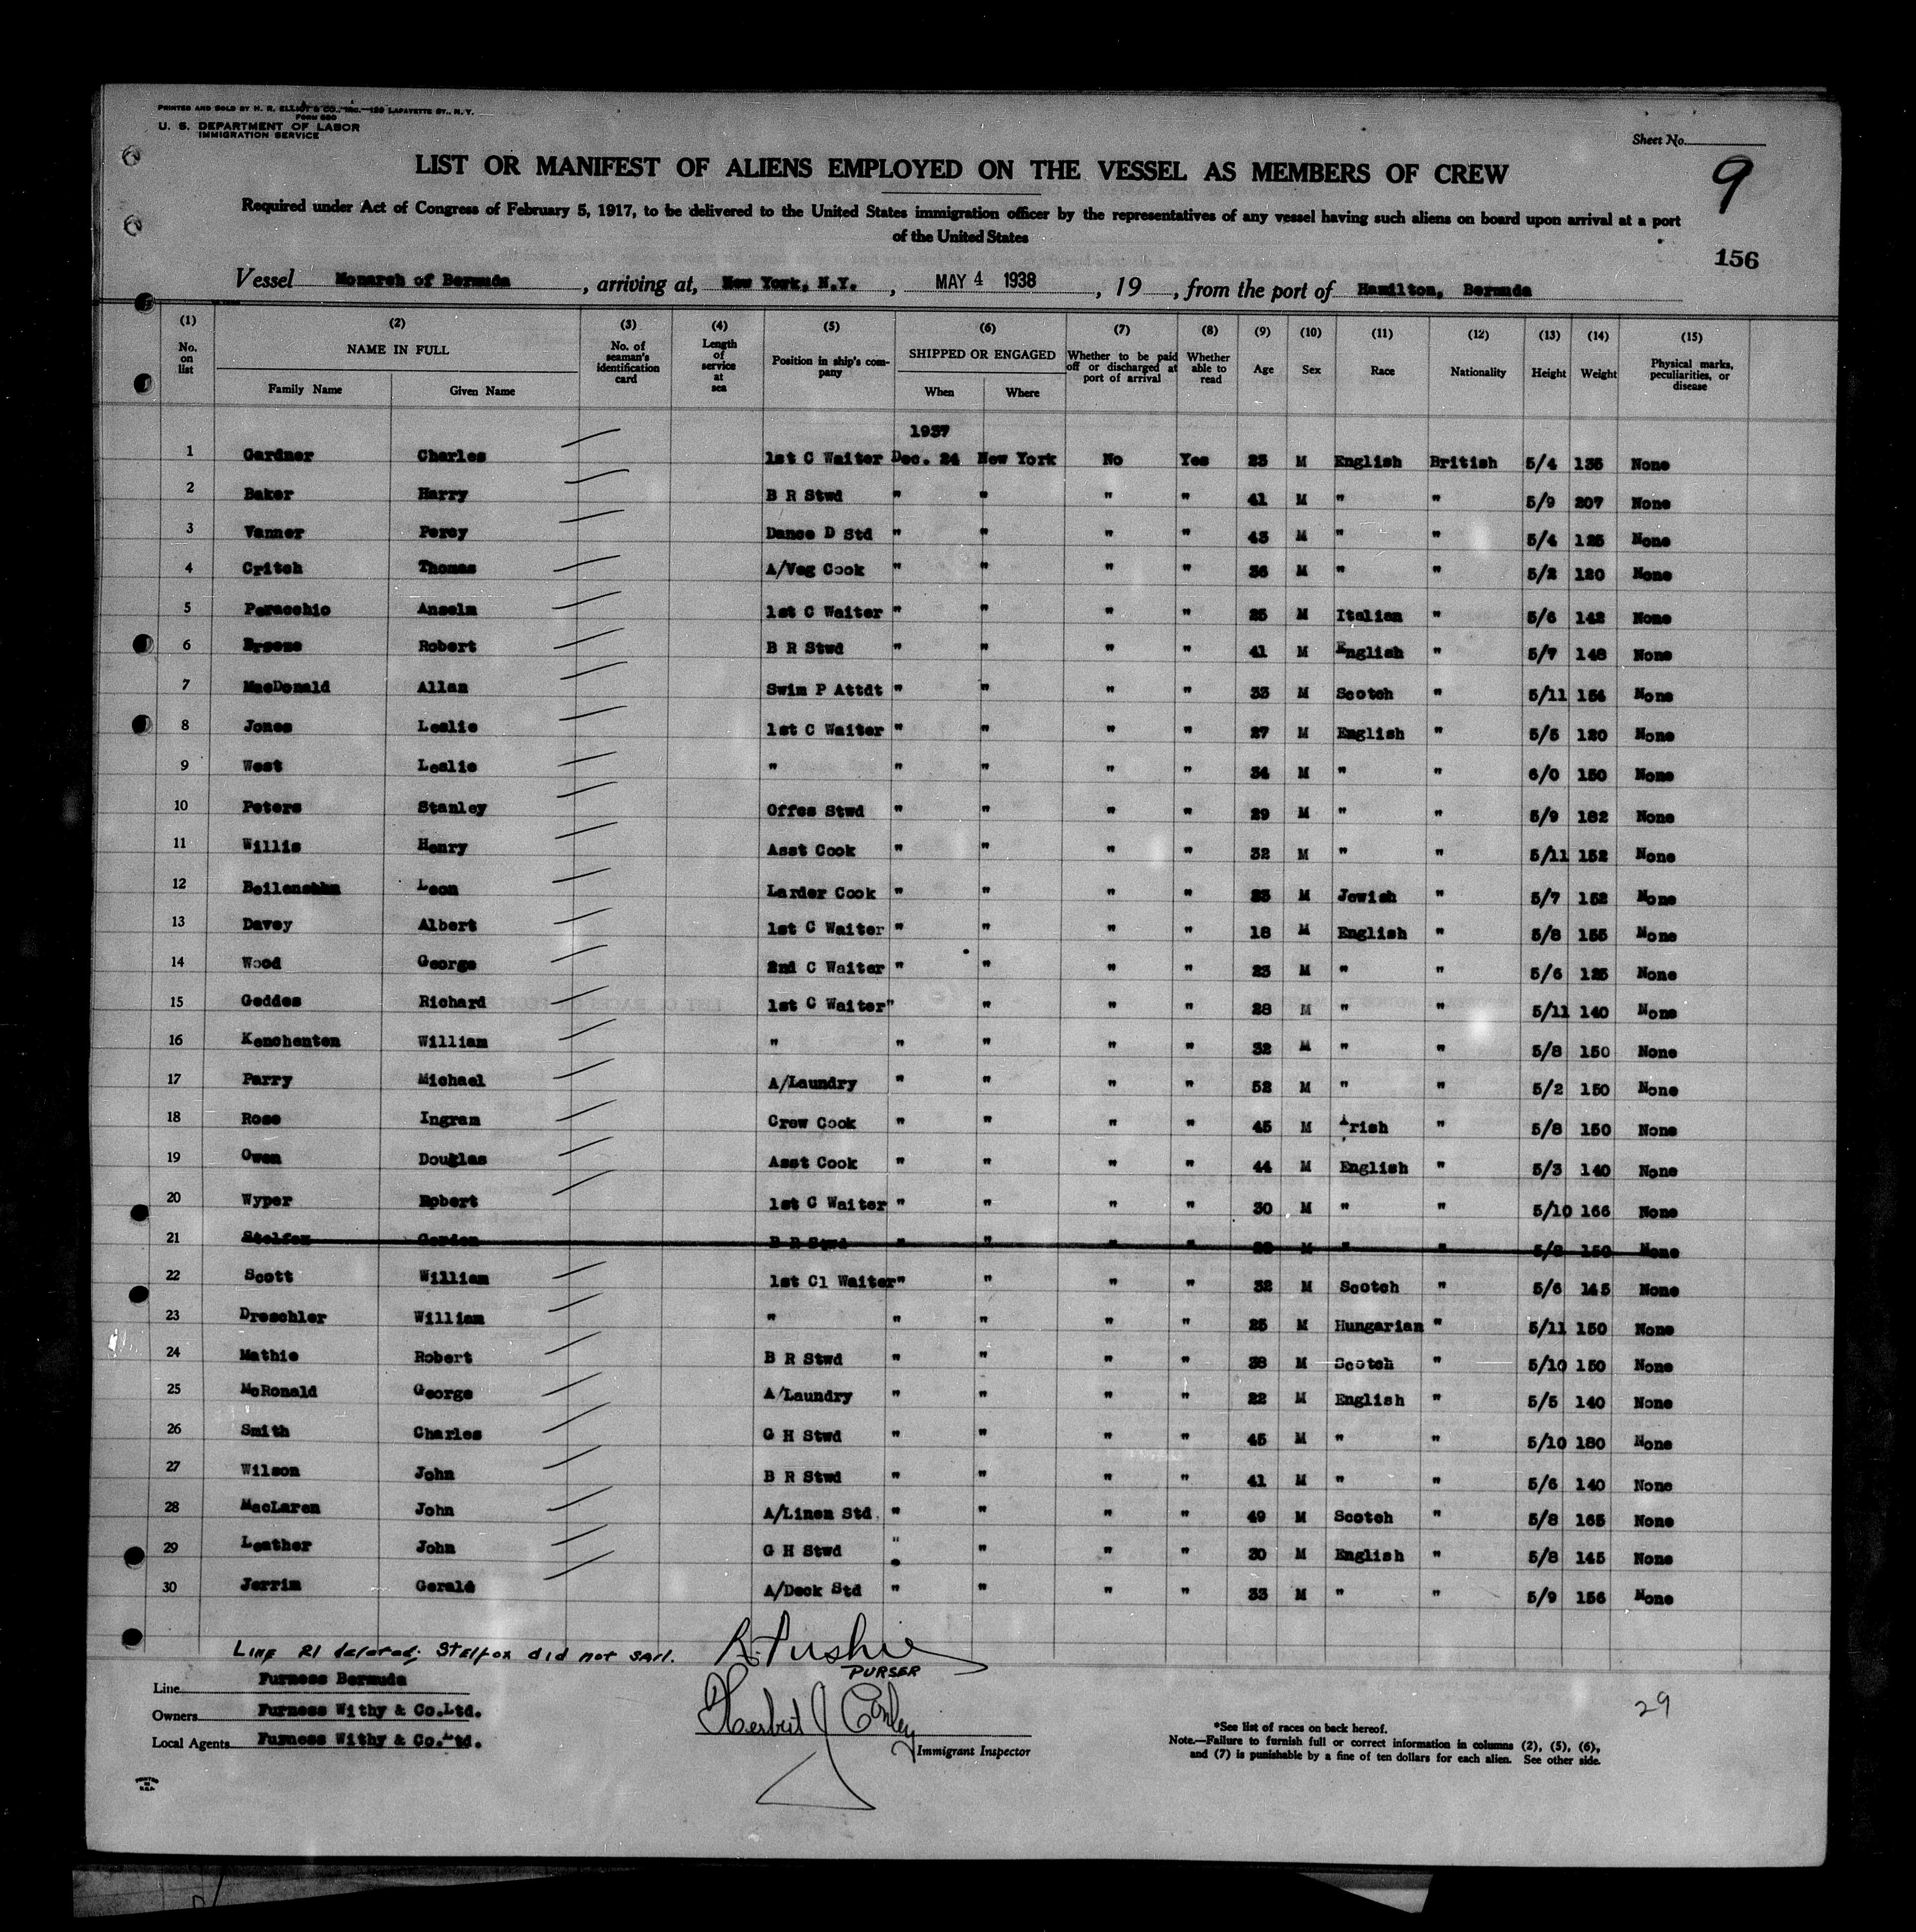 PRINTED AND SOLD BY H. R. ELLIOT & CO., INC.—129 LAFAYETTE ST., N. Y.
FORM 680
U. S. DEPARTMENT OF LABOR
IMMIGRATION SERVICE
Sheet No.
9
LIST OR MANIFEST OF ALIENS EMPLOYED ON THE VESSEL AS MEMBERS OF CREW
Required under Act of Congress of February 5, 1917, to be delivered to the United States immigration officer by the representatives of any vessel having such aliens on board upon arrival at a port
of the United States
156
Vessel Monarch of Bermuda , arriving at, New York, N.Y. , MAY 4 1938 , 19 , from the port of Hamilton, Bermuda
(1) (2) (3) (4) (5) (6) (7) (8) (9) (10) (11) (12) (13) (14) (15)
No. on list NAME IN FULL Family Name Given Name No. of seaman's identification card Length of service at sea Position in ship's company SHIPPED OR ENGAGED When Where Whether to be paid off or discharged at port of arrival Whether able to read Age Sex Race Nationality Height Weight Physical marks, peculiarities, or disease
1937
1 Gardner Charles 1st C Waiter Dec. 24 New York No Yes 23 M English British 5/4 135 None
2 Baker Harry B R Stwd " " " " 41 M " " 5/9 207 None
3 Vanner Percy Dance D Std " " " " 43 M " " 5/4 125 None
4 Critch Thomas A/Veg Cook " " " " 36 M " " 5/2 120 None
5 Peracchio Anselm 1st C Waiter " " " " 25 M Italian " 5/6 142 None
6 Robert B R Stwd " " " " 41 M English " 5/7 148 None
7 MacDonald Allan Swim P Attdt " " " " 33 M Scotch " 5/11 154 None
8 Jones Leslie 1st C Waiter " " " " 27 M English " 5/5 120 None
9 West Leslie " " " " " 34 M " " 6/0 150 None
10 Peters Stanley Offes Stwd " " " " 29 M " " 5/9 182 None
11 Willis Henry Asst Cook " " " " 32 M " " 5/11 152 None
12 Leon Larder Cook " " " " 23 M Jewish " 5/7 152 None
13 Davey Albert 1st C Waiter " " " " 18 M English " 5/8 155 None
14 Wood George 2nd C Waiter " " " " 23 M " " 5/6 125 None
15 Geddes Richard 1st C Waiter " " " " 28 M " " 5/11 140 None
16 Kenchenten William " " " " " 32 M " " 5/8 150 None
17 Parry Michael A/Laundry " " " " 52 M " " 5/2 150 None
18 Rose Ingram Crew Cook " " " " 45 M Irish " 5/8 150 None
19 Owen Douglas Asst Cook " " " " 44 M English " 5/3 140 None
20 Wyper Robert 1st C Waiter " " " " 30 M " " 5/10 166 None
21 Stelfox Gordon B R Stwd " " " " M " " 5/8 150 None
22 Scott William 1st Cl Waiter " " " " 32 M Scotch " 5/6 145 None
23 Dreschler William " " " " " 25 M Hungarian " 5/11 150 None
24 Mathie Robert B R Stwd " " " " 38 M Scotch " 5/10 150 None
25 McRonald George A/Laundry " " " " 22 M English " 5/5 140 None
26 Smith Charles G H Stwd " " " " 45 M " " 5/10 180 None
27 Wilson John B R Stwd " " " " 41 M " " 5/6 140 None
28 MacLaren John A/Linen Std " " " " 49 M Scotch " 5/8 165 None
29 Leather John G H Stwd " " " " 30 M English " 5/8 145 None
30 Jerrim Gerald A/Deck Std " " " " 33 M " " 5/9 156 None
LINE 21 deleted; Stelfox did not sail.
PURSER
Line Furness Bermuda
Owners Furness Withy & Co.Ltd.
Local Agents Furness Withy & Co.Ltd.
Herbert J Conley
Immigrant Inspector
29
*See list of races on back hereof.
Note.—Failure to furnish full or correct information in columns (2), (5), (6),
and (7) is punishable by a fine of ten dollars for each alien. See other side.
PRINTED
IN
U.S.A.